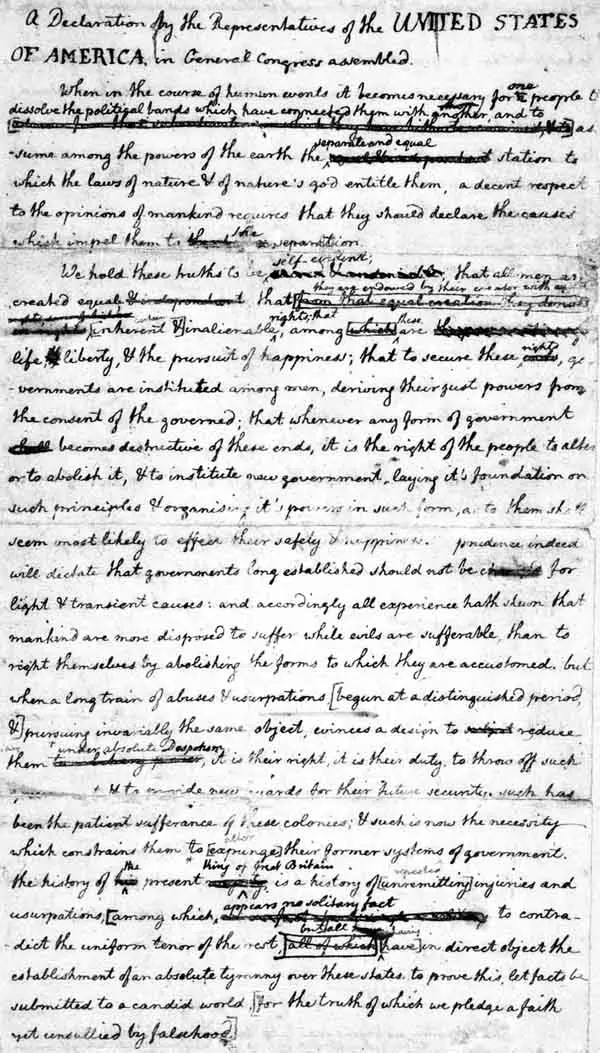 A Declaration by the Representatives of the UNITED STATES
OF AMERICA, in General Congress assembled.
When in the course of human events it becomes necessary for one people to
dissolve the political bands which have connected them with another, and to
as-
-sume among the powers of the earth the separate and equal station to
which the laws of nature & of nature's god entitle them, a decent respect
to the opinions of mankind requires that they should declare the causes
which impel them to the separation.
We hold these truths to be self-evident; that all men are
created equal & independant that they are endowed by their creator with
[from that equal creation they derive
rights; that
[inherent &] inalienable, among [which] these are
life & liberty, & the pursuit of happiness; that to secure these rights, go
-vernments are instituted among men, deriving their just powers from
the consent of the governed; that whenever any form of government
shall becomes destructive of these ends, it is the right of the people to alter
or to abolish it, & to institute new government, laying it's foundation on
such principles & organising it's powers in such form, as to them shall
seem most likely to effect their safety & happiness. prudence indeed
will dictate that governments long established should not be for
light & transient causes: and accordingly all experience hath shewn that
mankind are more disposed to suffer while evils are sufferable, than to
right themselves by abolishing the forms to which they are accustomed. but
when a long train of abuses & usurpations [begun at a distinguished period,
&] pursuing invariably the same object, evinces a design to subject reduce
under absolute Despotism
them it is their right, it is their duty, to throw off such
& to provide new guards for their future security. such has
been the patient sufferance of these colonies; & such is now the necessity
which constrains them to [expunge] alter their former systems of government.
the history of the present King of Great Britain is a history of [unremitting] repeated injuries and
usurpations, [among which, appears no solitary fact to contra-
-dict the uniform tenor of the rest, but all [all of which] [have] in direct object the
establishment of an absolute tyranny over these states. to prove this, let facts be
submitted to a candid world, [for the truth of which we pledge a faith
yet unsullied by falsehood.]